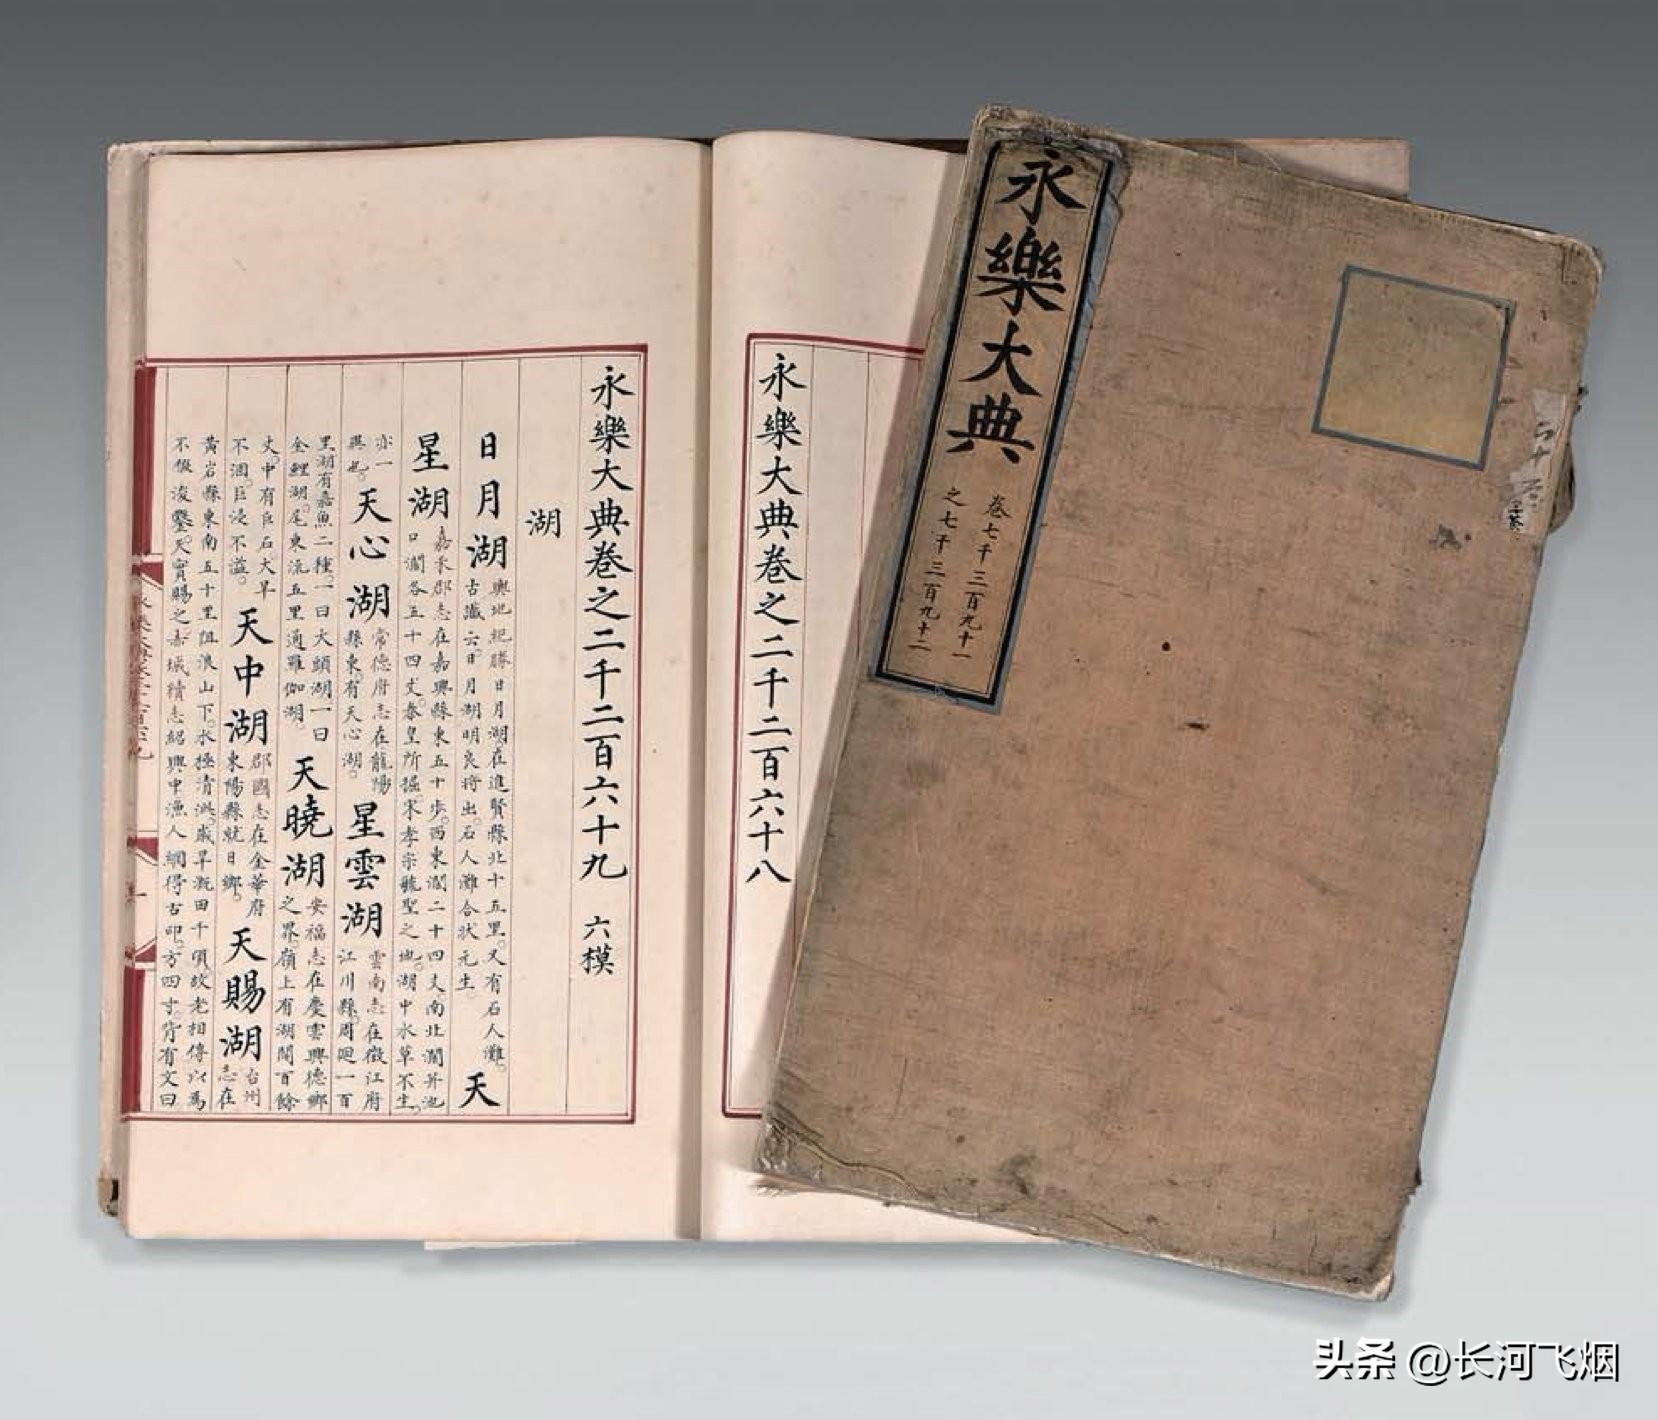 永樂大典
卷七千三百九十一
之七千三百九十二
永樂大典卷之二千二百六十八
永樂大典卷之二千二百六十九 六模
湖
日月湖 輿地紀勝日月湖在進賢縣北十五里。又有石人灘。
古讖云。日月湖明良將出。石人灘合狀元生。 天
星湖 嘉禾郡志在嘉興縣東五十步。西東濶二十四丈南北濶并池
口濶各五十四丈。秦皇所掘。宋孝宗毓聖之地。湖中水草不生。
亦一
異也。 天心湖 常德府志在龍陽
縣東。有天心湖。 星雲湖 雲南志在徵江府
江川縣。周廻一百
里。湖有嘉魚二種。一曰大頭湖一曰
金鯉湖。尾東流五里通羅伽湖。 天曉湖 安福志在慶雲興德鄉
之界。嶺上有湖闊百餘
丈。中有巨石大旱
不涸。巨浸不溢。 天中湖 郡國志在金華府
東陽縣就日鄉。 天賜湖 台州
志在
黃岩縣東南五十里阻浪山下。水極清洌。歲旱溉田千頃。故老相傳以爲
不假浚鑿。天實賜之。赤城續志紹興中漁人網得古印。方四寸。背有文曰
头条 @长河飞烟